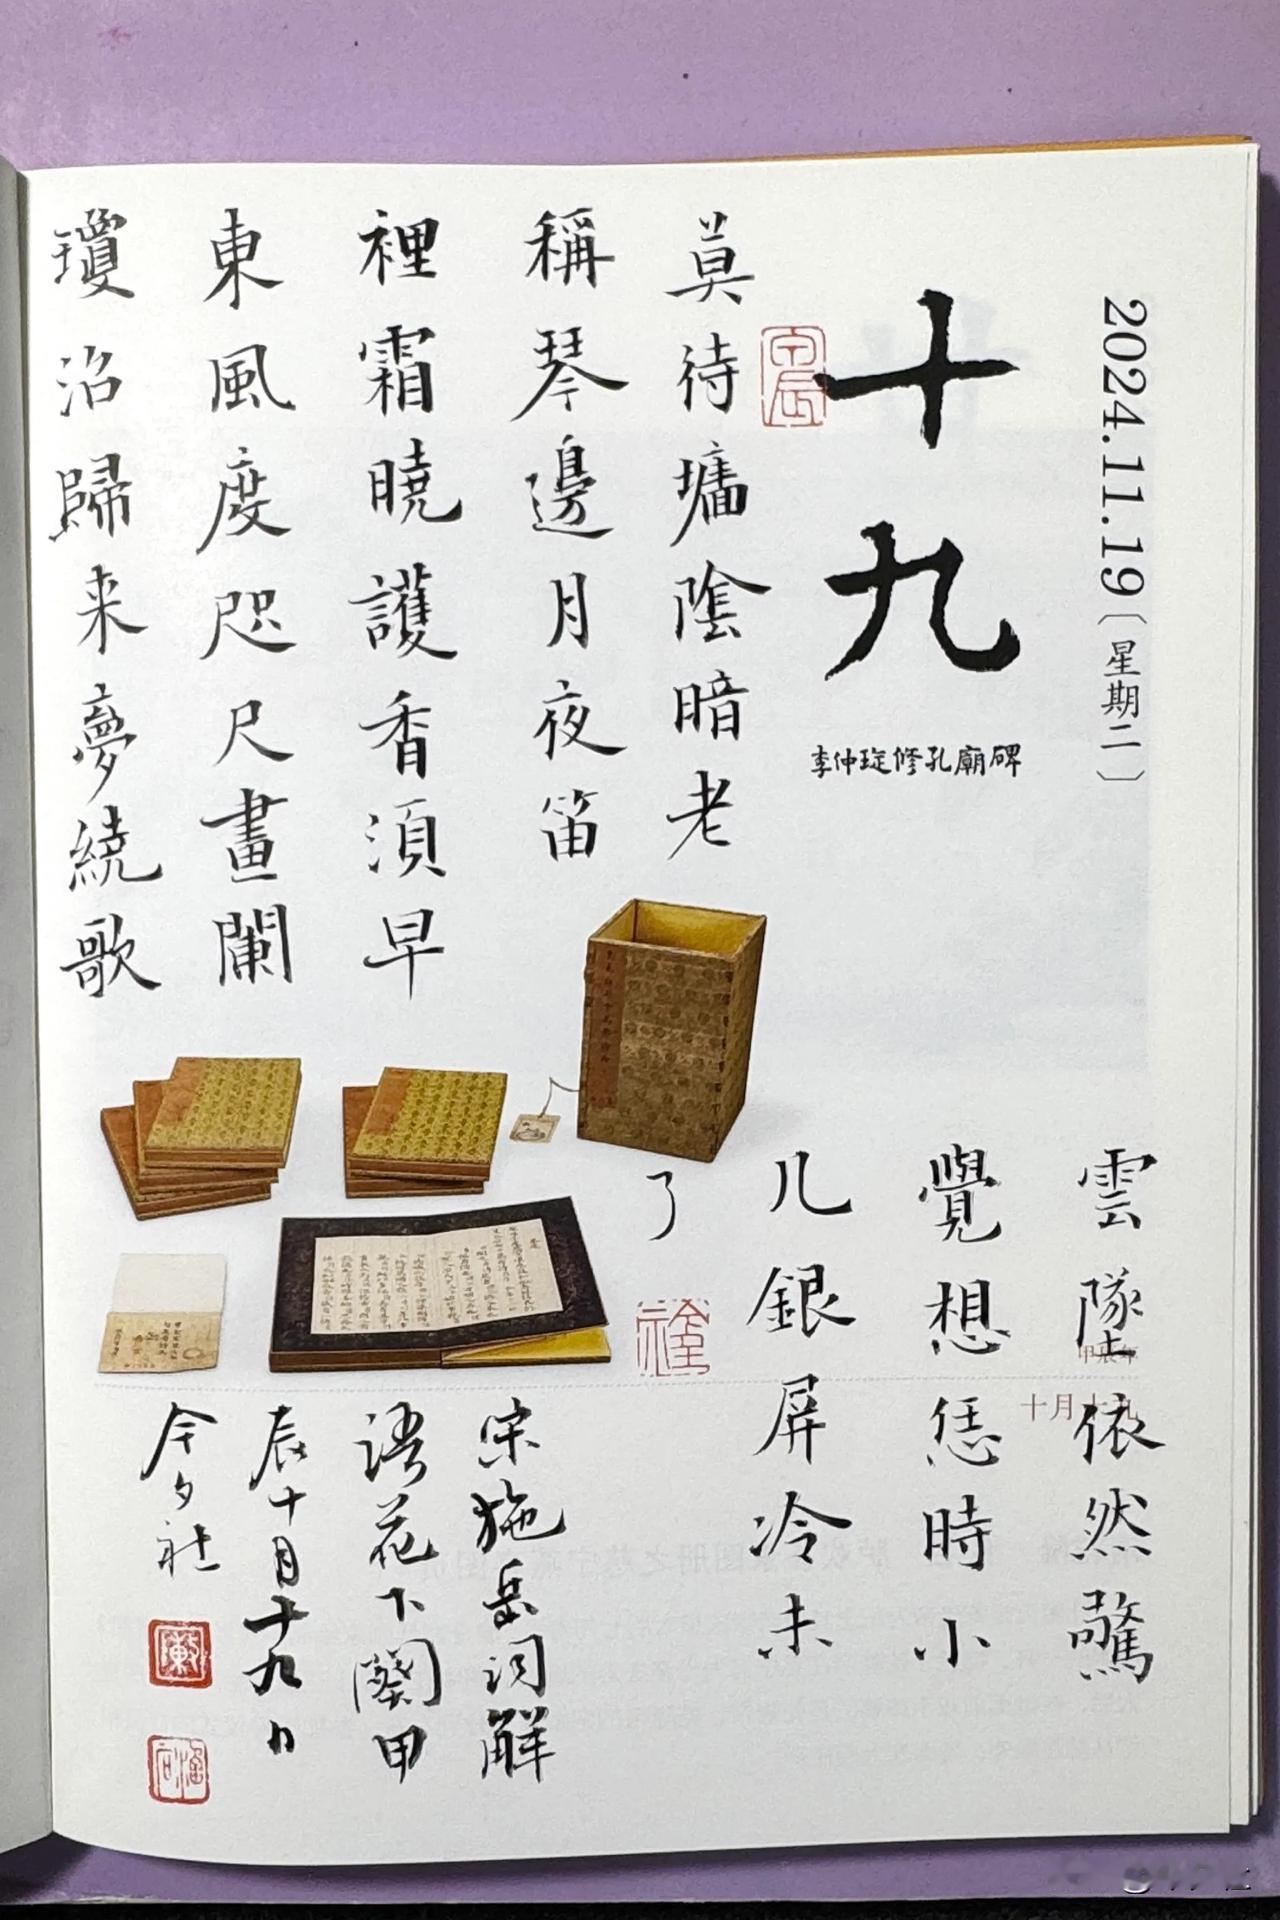 2024.11.19〔星期二〕
十九
李仲琁修孔廟碑
莫待墉陰暗老
稱琴邊月夜笛
裡霜曉護香須早
東風度咫尺畫闌
瓊沼歸来夢繞歌
甲辰年
十月十九
雲墜依然驚
覺想恁時小
几銀屏冷未
了
宋施岳詞解
語花下闋甲
辰十月十九日
今夕社